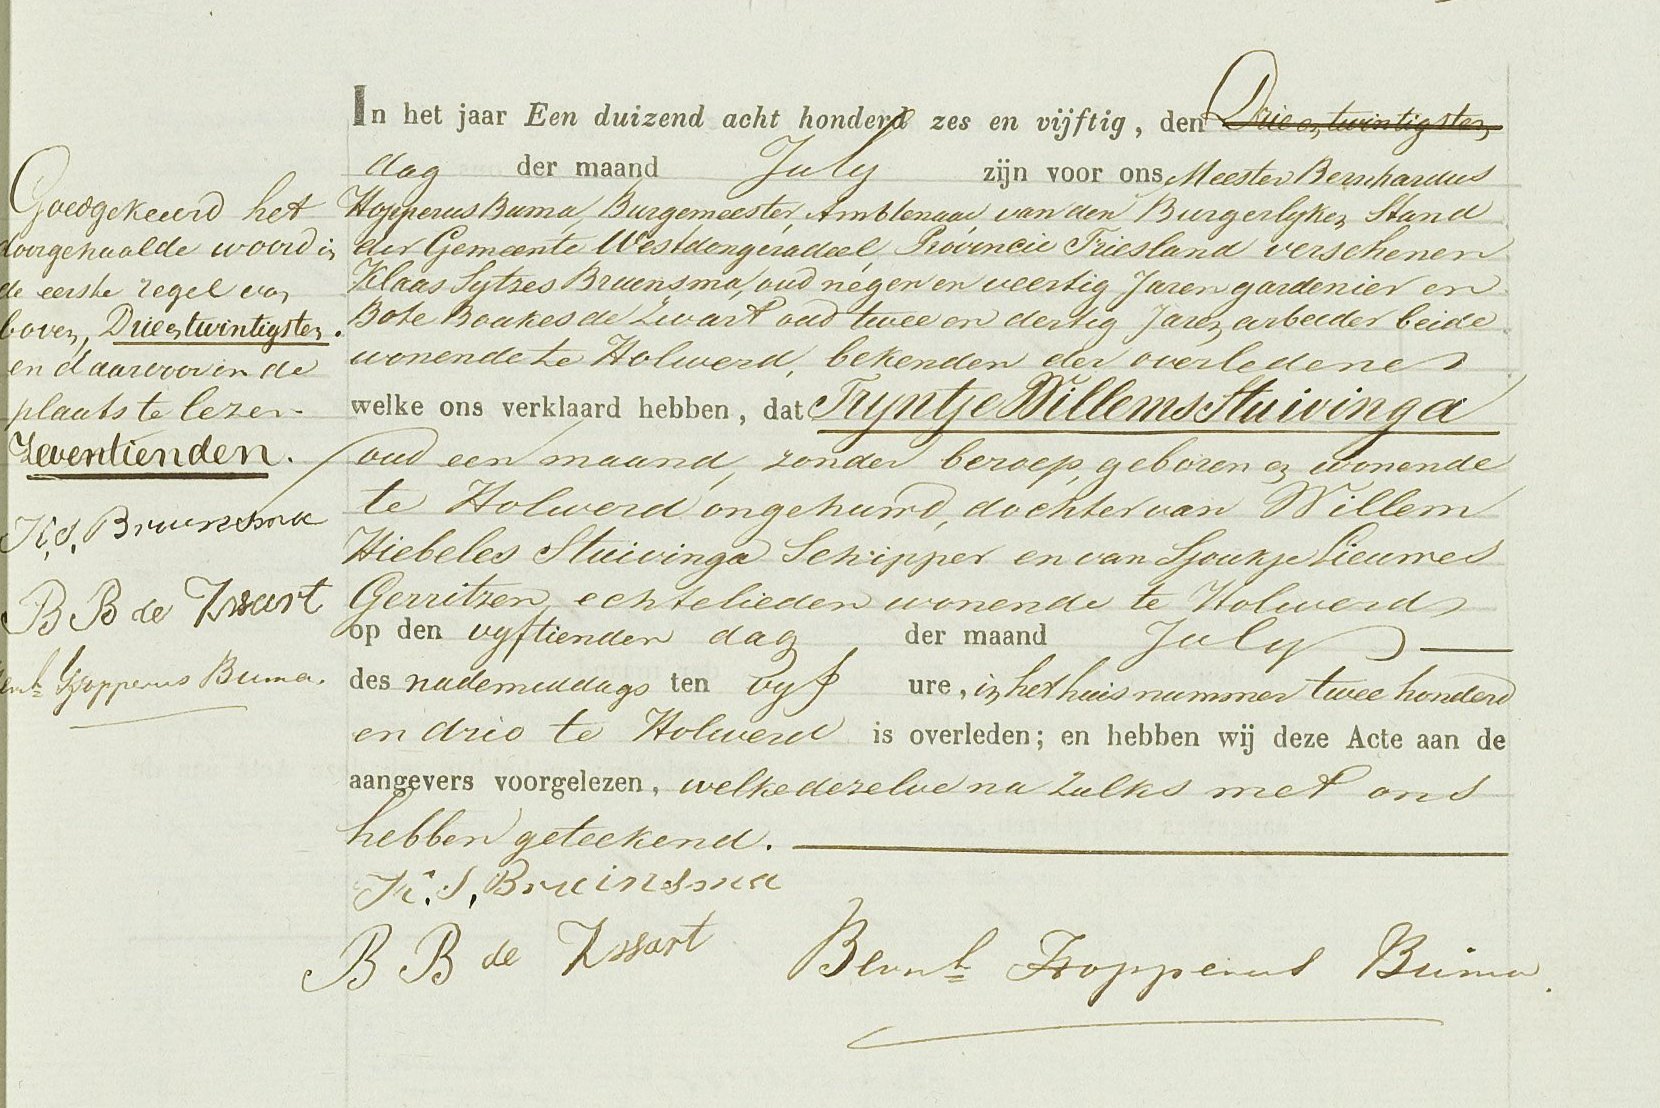 In het jaar Een duizend acht honderd zes en vijftig, den Drie en twintigsten
dag der maand July zijn voor ons Meester Bernhardus
Hopperus Buma, Burgemeester, Ambtenaar van den Burgerlyken Stand
der Gemeente Westdongeradeel, Provincie Friesland verschenen
Klaas Sytzes Bruinsma, oud negen en veertig Jaren gardenier en
Bote Boukes de Zwart oud twee en dertig Jaren, arbeider beide
wonende te Holwerd, bekenden der overledene
welke ons verklaard hebben, dat Tryntje Willems Stuivinga
oud een maand, zonder beroep, geboren en wonende
te Holwerd ongehuwd, dochter van Willem
Hiebeles Stuivinga Schipper en van Sjoukje Lieuwes
Gerritzen, echtelieden wonende te Holwerd
op den vyftienden dag der maand July
des nademiddags ten vyf ure, in het huis nummer twee honderd
en drie te Holwerd is overleden; en hebben wij deze Acte aan de
aangevers voorgelezen, welke dezelve na zulks met ons
hebben geteekend.
K. S. Bruinsma
B B de Zwart
Bernh Hopperus Buma.
Goedgekeurd het
doorgehaalde woord in
de eerste regel van
boven, Drieentwintigsten.
en daarvoor in de
plaats te lezen
Zeventienden.
K. S. Bruinsma
B B de Zwart
Bernh Hopperus Buma.